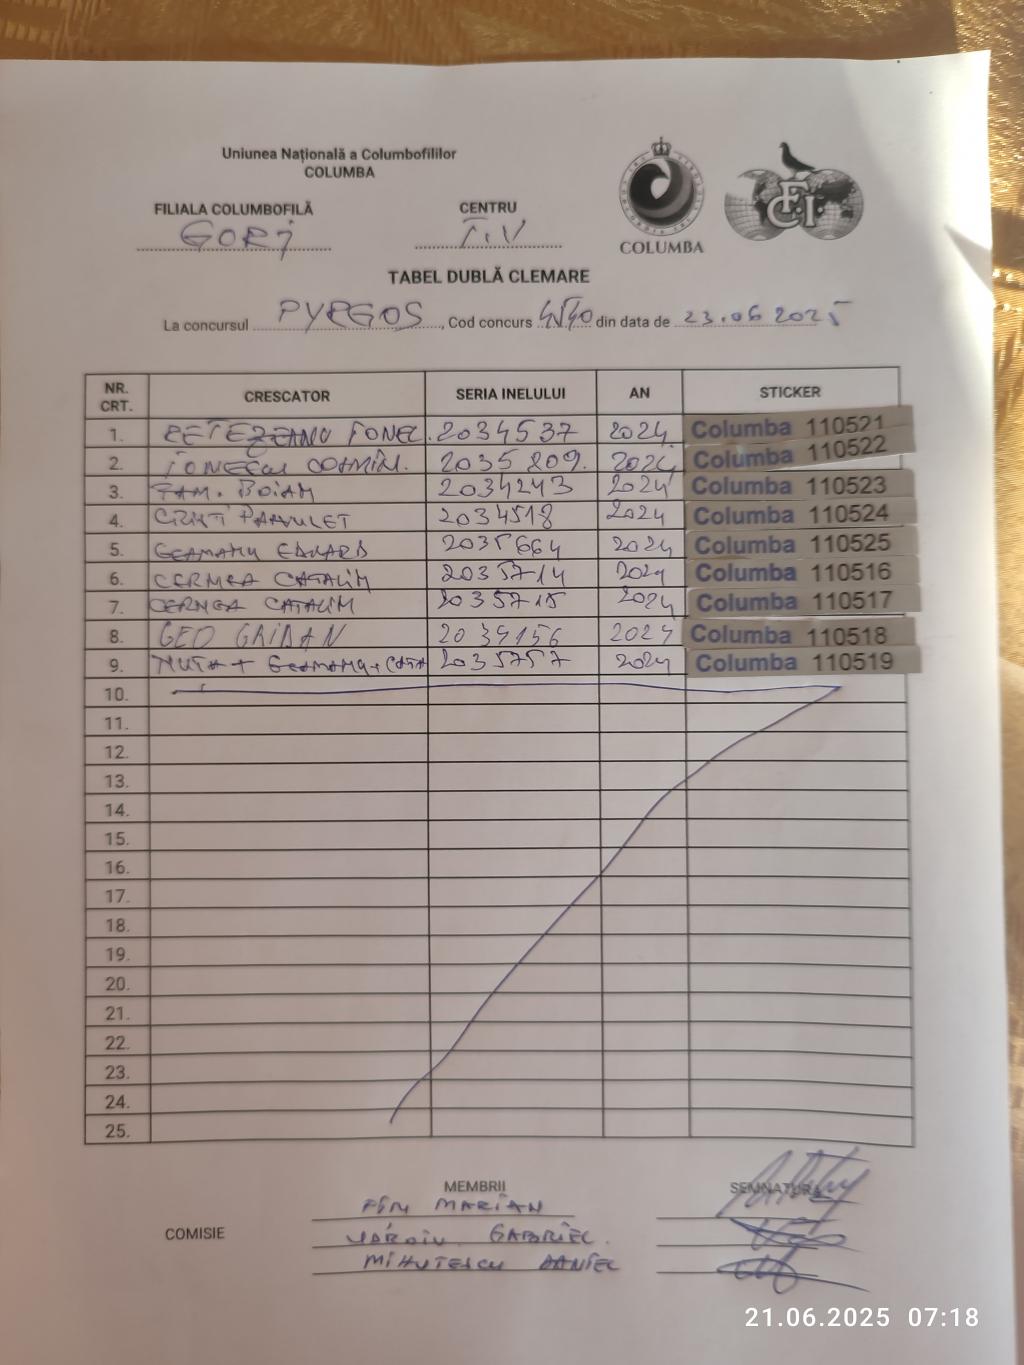 Uniunea Națională a Columbofililor
COLUMBA
FILIALA COLUMBOFILĂ
CENTRU
GORJ
COLUMBA
F.C.I.
TABEL DUBLĂ CLEMARE
La concursul PYRGOS, Cod concurs din data de 23.06 2025
NR. CRT. CRESCATOR SERIA INELULUI AN STICKER
1. RETEZEANU IONEL. 2034537 2024 Columba 110521
2. IONESCU COSMIN. 2035209. 2024 Columba 110522
3. FAM. BOIAN 2034243 2024 Columba 110523
4. PARVULET 2034518 2024 Columba 110524
5. GEAMANU EDUARD 2035664 2024 Columba 110525
6. CERNEA CATALIN 2035714 2024 Columba 110516
7. CERNEA CATALIN 2035715 2024 Columba 110517
8. GEO GRIDAN 2034156 2024 Columba 110518
9. MUTA + GEAMANU + CATA 2035757 2024 Columba 110519
10.
11.
12.
13.
14.
15.
16.
17.
18.
19.
20.
21.
22.
23.
24.
25.
MEMBRII SEMNATURA
MARIAN
COMISIE
GABRIEL.
MIHUTESCU DANIEL
21.06.2025 07:18